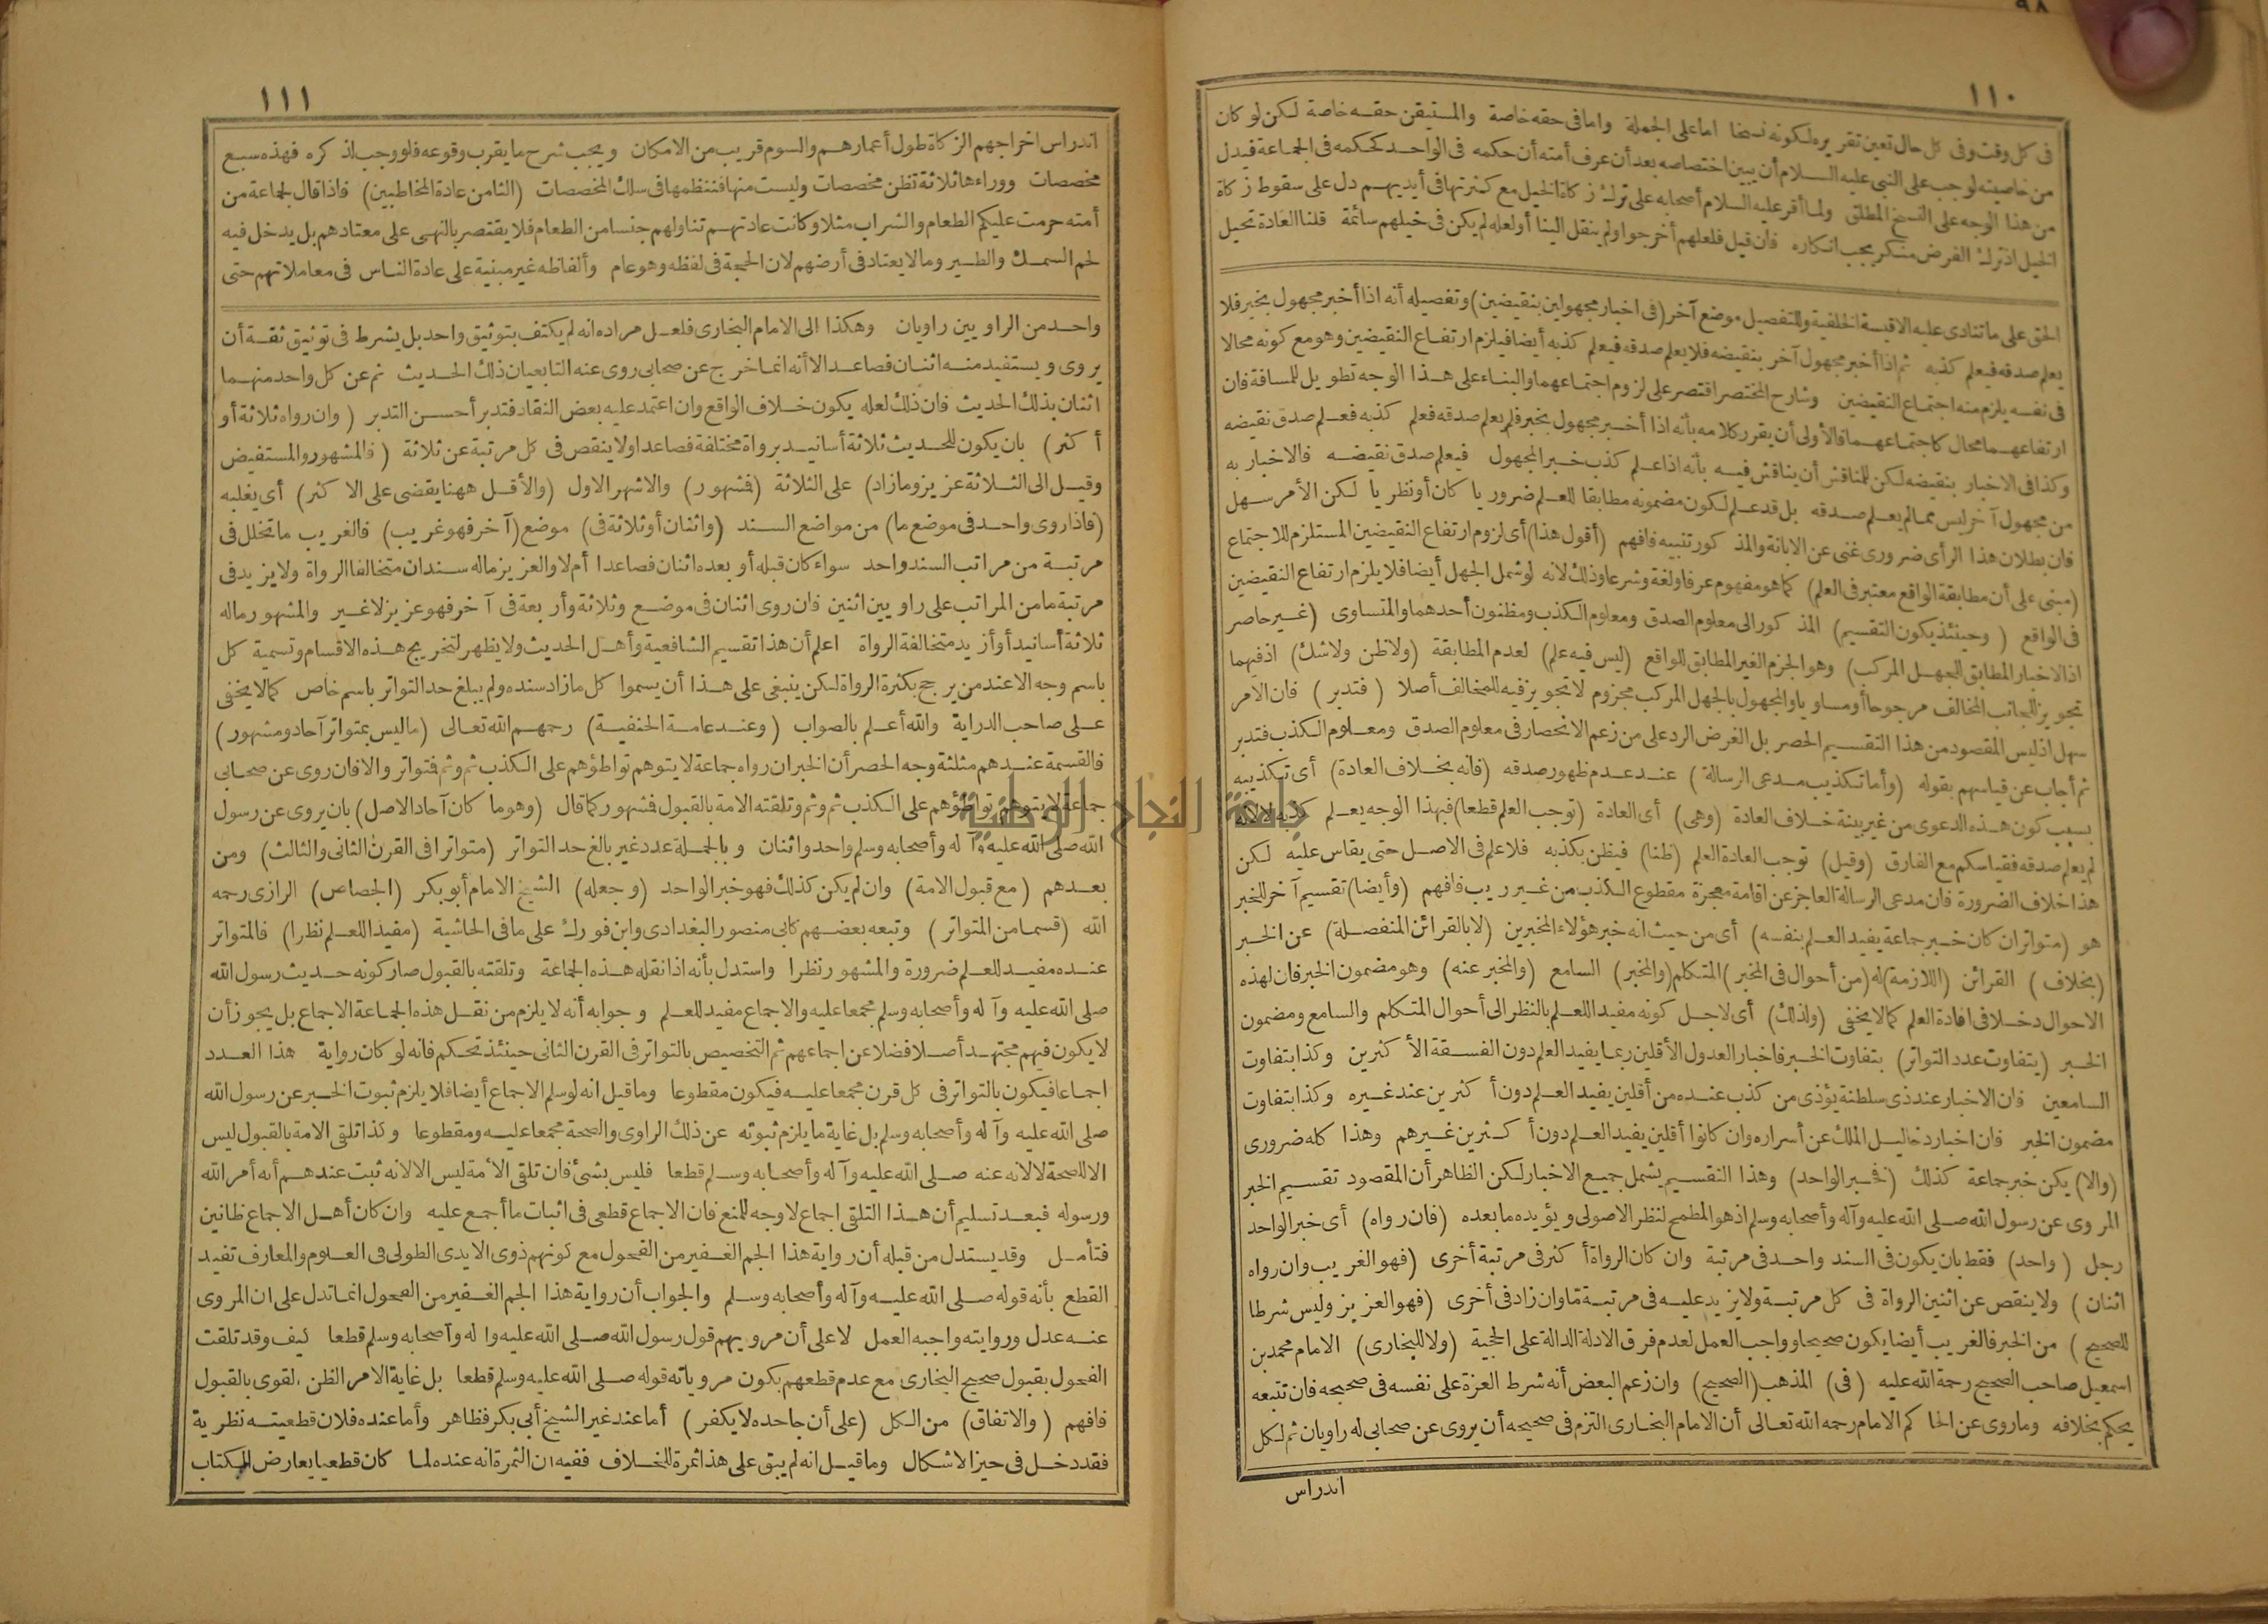 ٩٨
١١٠
فى كل وقت وفى كل حال تعين تقريره لكونه نسخا اما على الجملة واما فى حقه خاصة والمستيقن حقه خاصة لكن لو كان
من خاصيته لوجب على النبى عليه السلام أن يبين اختصاصه بعد أن عرف أمته أن حكمه فى الواحد كحكمه فى الجماعة فيدل
من هذا الوجه على النسخ المطلق ولما أقر عليه السلام أصحابه على ترك زكاة الخيل مع كثرتها فى أيديهم دل على سقوط زكاة
الخيل اذ ترك الفرض منكر يجب انكاره فان قيل فلعلهم أخرجوا ولم ينقل الينا أو لعله لم يكن فى خيلهم سائمة قلنا العادة تحيل
الحق على ما تنادى عليه الاقيسة الخلفية وللتفصيل موضع آخر (فى اخبار مجهولين بنقيضين) وتفصيله أنه اذا أخبر مجهول بخبر فلا
يعلم صدقه فيعلم كذبه ثم اذا أخبر مجهول آخر بنقيضه فلا يعلم صدقه فيعلم كذبه أيضا فيلزم ارتفاع النقيضين وهو مع كونه محالا
فى نفسه يلزم منه اجتماع النقيضين وشارح المختصر اقتصر على لزوم اجتماعهما والبناء على هذا الوجه تطويل للمسافة فان
ارتفاعهما محال كاجتماعهما فالأولى أن يقرر كلامه بأنه اذا أخبر مجهول بخبر فلم يعلم صدقه فعلم كذبه فعلم صدق نقيضه
وكذا فى الاخبار بنقيضه لكن للمناقش أن يناقش فيه بأنه اذا علم كذب خبر المجهول فيعلم صدق نقيضه فالاخبار به
من مجهول آخر ليس مما لم يعلم صدقه بل قد علم لكون مضمونه مطابقا للعلم ضروريا كان أو نظريا لكن الأمر سهل
فان بطلان هذا الرأى ضرورى غنى عن الابانة والمذكور تنبيه فافهم (أقول هذا) أى لزوم ارتفاع النقيضين المستلزم للاجتماع
(مبنى على أن مطابقة الواقع معتبر فى العلم) كما هو مفهوم عرفا ولغة وشرعا وذلك لانه لو شمل الجهل أيضا فلا يلزم ارتفاع النقيضين
فى الواقع (وحينئذ يكون التقسيم) المذكور الى معلوم الصدق ومعلوم الكذب ومظنون أحدهما والمتساوى (غير حاصر
اذ الاخبار المطابق للجهل المركب) وهو الجزم الغير المطابق للواقع (ليس فيه علم) لعدم المطابقة (ولا ظن ولا شك) اذ فيهما
تجويز للجانب المخالف مرجوحا أو مساويا والمجهول بالجهل المركب مجزوم لا تجويز فيه للمخالف أصلا (فتدبر) فان الأمر
سهل اذ ليس المقصود من هذا التقسيم الحصر بل الغرض الرد على من زعم الانحصار فى معلوم الصدق ومعلوم الكذب فتدبر
ثم أجاب عن قياسهم بقوله (وأما تكذيب مدعى الرسالة) عند عدم ظهور صدقه (فانه بخلاف العادة) أى تكذيبه
بسبب كون هذه الدعوى من غير بينة خلاف العادة (وهى) أى العادة (توجب العلم قطعا) فبهذا الوجه يعلم كذبه لا لانه
لم يعلم صدقه فقياسكم مع الفارق (وقيل) توجب العادة العلم (ظنا) فيظن بكذبه فلا علم فى الاصل حتى يقاس عليه لكن
هذا خلاف الضرورة فان مدعى الرسالة العاجز عن اقامة معجزة مقطوع الكذب من غير ريب فافهم (وأيضا) تقسيم آخر للخبر
هو (متواتر ان كان خبر جماعة يفيد العلم بنفسه) أى من حيث انه خبر هؤلاء المخبرين (لا بالقرائن المنفصلة) عن الخبر
(بخلاف) القرائن (اللازمة) له (من أحوال فى المخبر) المتكلم (والمخبر) السامع (والمخبر عنه) وهو مضمون الخبر فان لهذه
الاحوال دخلا فى افادة العلم كما لا يخفى (ولذلك) أى لاجل كونه مفيدا للعلم بالنظر الى أحوال المتكلم والسامع ومضمون
الخبر (يتفاوت عدد التواتر) بتفاوت الخبر فاخبار العدول الأقلين ربما يفيد العلم دون الفسقة الأكثرين وكذا بتفاوت
السامعين فان الاخبار عند ذى سلطنة يؤذى من كذب عنده من أقلين يفيد العلم دون أكثرين عند غيره وكذا بتفاوت
مضمون الخبر فان اخبار دخاليل الملك عن أسراره وان كانوا أقلين يفيد العلم دون أكثرين غيرهم وهذا كله ضرورى
(والا) يكن خبر جماعة كذلك (فخبر الواحد) وهذا التقسيم يشمل جميع الاخبار لكن الظاهر أن المقصود تقسيم الخبر
المروى عن رسول الله صلى الله عليه وآله وأصحابه وسلم اذ هو المطمح لنظر الاصولى ويؤيده ما بعده (فان رواه) أى خبر الواحد
رجل (واحد) فقط بان يكون فى السند واحد فى مرتبة وان كان الرواة أكثر فى مرتبة أخرى (فهو الغريب وان رواه
اثنان) ولا ينقص عن اثنين الرواة فى كل مرتبة ولا يزيد عليه فى مرتبة ما وان زاد فى أخرى (فهو العزيز وليس شرطا
للصحيح) من الخبر فالغريب أيضا يكون صحيحا وواجب العمل لعدم فرق الادلة الدالة على الحجية (ولا للبخارى) الامام محمد بن
اسمعيل صاحب الصحيح رحمة الله عليه (فى) المذهب (الصحيح) وان زعم البعض أنه شرط العزة على نفسه فى صحيحه فان تتبعه
يحكم بخلافه وما روى عن الحاكم الامام رحمه الله تعالى أن الامام البخارى التزم فى صحيحه أن يروى عن صحابى له راويان ثم لكل
اندراس
١١١
اندراس اخراجهم الزكاة طول أعمارهم والسوم قريب من الامكان ويجب شرح ما يقرب وقوعه فلو وجب لذكره فهذه سبع
مخصصات ووراءها ثلاثة تظن مخصصات وليست منها فننظمها فى سلك المخصصات (الثامن عادة المخاطبين) فاذا قال لجماعة من
أمته حرمت عليكم الطعام والشراب مثلا وكانت عادتهم تناولهم جنسا من الطعام فلا يقتصر بالنهى على معتادهم بل يدخل فيه
لحم السمك والطير وما لا يعتاد فى أرضهم لان الحجة فى لفظه وهو عام وألفاظه غير مبنية على عادة الناس فى معاملاتهم حتى
واحد من الراويين راويان وهكذا الى الامام البخارى فلعل مراده انه لم يكتف بتوثيق واحد بل يشرط فى توثيق ثقة أن
يروى ويستفيد منه اثنان فصاعدا لا أنه انما خرج عن صحابى روى عنه التابعيان ذلك الحديث ثم عن كل واحد منهما
اثنان بذلك الحديث فان ذلك لعله يكون خلاف الواقع وان اعتمد عليه بعض النقاد فتدبر أحسن التدبر (وان رواه ثلاثة أو
أكثر) بان يكون للحديث ثلاثة أسانيد برواة مختلفة فصاعدا ولا ينقص فى كل مرتبة عن ثلاثة (فالمشهور والمستفيض
وقيل الى الثلاثة عزيز وما زاد) على الثلاثة (فشهور) والاشهر الاول (والأقل ههنا يقضى على الاكثر) أى يغلبه
(فاذا روى واحد فى موضع ما) من مواضع السند (واثنان أو ثلاثة فى) موضع (آخر فهو غريب) فالغريب ما تخلل فى
مرتبة من مراتب السند واحد سواء كان قبله أو بعده اثنان فصاعدا أم لا والعزيز ماله سندان متخالفا الرواة ولا يزيد فى
مرتبة ما من المراتب على راويين اثنين فان روى اثنان فى موضع وثلاثة وأربعة فى آخر فهو عزيز لا غير والمشهور ماله
ثلاثة أسانيد أو أزيد متخالفة الرواة اعلم أن هذا تقسيم الشافعية وأهل الحديث ولا يظهر لتخريج هذه الاقسام وتسمية كل
باسم وجه الا عند من يرجح بكثرة الرواة لكن ينبغى على هذا أن يسموا كل ما زاد سنده ولم يبلغ حد التواتر باسم خاص كما لا يخفى
على صاحب الدراية والله أعلم بالصواب (وعند عامة الحنفية) رحمهم الله تعالى (ما ليس بمتواتر آحاد ومشهور)
فالقسمة عندهم مثلثة وجه الحصر أن الخبر ان رواه جماعة لا يتوهم تواطؤهم على الكذب ثم وثم فتواتر والا فان روى عن صحابى
جماعة لا يتوهم تواطؤهم على الكذب ثم وثم وتلقته الامة بالقبول فشهور كما قال (وهو ما كان آحاد الاصل) بان يروى عن رسول
الله صلى الله عليه وآله وأصحابه وسلم واحد واثنان وبالجملة عدد غير بالغ حد التواتر (متواترا فى القرن الثانى والثالث) ومن
بعدهم (مع قبول الامة) وان لم يكن كذلك فهو خبر الواحد (وجعله) الشيخ الامام أبو بكر (الجصاص) الرازى رحمه
الله (قسما من المتواتر) وتبعه بعضهم كابى منصور البغدادى وابن فورك على ما فى الحاشية (مفيدا للعلم نظرا) فالمتواتر
عنده مفيد للعلم ضرورة والمشهور نظرا واستدل بأنه اذا نقله هذه الجماعة وتلقته بالقبول صار كونه حديث رسول الله
صلى الله عليه وآله وأصحابه وسلم مجمعا عليه والاجماع مفيد للعلم وجوابه أنه لا يلزم من نقل هذه الجماعة الاجماع بل يجوز أن
لا يكون فيهم مجتهد أصلا فضلا عن اجماعهم ثم التخصيص بالتواتر فى القرن الثانى حينئذ تحكم فانه لو كان رواية هذا العدد
اجماعا فيكون بالتواتر فى كل قرن مجمعا عليه فيكون مقطوعا وما قيل انه لو سلم الاجماع أيضا فلا يلزم ثبوت الخبر عن رسول الله
صلى الله عليه وآله وأصحابه وسلم بل غاية ما يلزم ثبوته عن ذلك الراوى والصحة مجمعا عليه ومقطوعا وكذا تلقى الامة بالقبول ليس
الا للصحة لا لانه عنه صلى الله عليه وآله وأصحابه وسلم قطعا فليس بشئ فان تلقى الأمة ليس الا لانه ثبت عندهم أنه أمر الله
ورسوله فبعد تسليم أن هذا التلقى اجماع لا وجه للمنع فان الاجماع قطعى فى اثبات ما أجمع عليه وان كان أهل الاجماع ظانين
فتأمل وقد يستدل من قبله أن رواية هذا الجم الغفير من الفحول مع كونهم ذوى الايدى الطولى فى العلوم والمعارف تفيد
القطع بأنه قوله صلى الله عليه وآله وأصحابه وسلم والجواب أن رواية هذا الجم الغفير من الفحول انما تدل على ان المروى
عنه عدل وروايته واجبه العمل لا على أن مرويهم قول رسول الله صلى الله عليه واله وأصحابه وسلم قطعا كيف وقد تلقت
الفحول بقبول صحيح البخارى مع عدم قطعهم بكون مروياته قوله صلى الله عليه وسلم قطعا بل غاية الامر الظن القوى بالقبول
فافهم (والاتفاق) من الكل (على أن جاحده لا يكفر) أما عند غير الشيخ أبى بكر فظاهر وأما عنده فلان قطعيته نظرية
فقد دخل فى حيز الاشكال وما قيل انه لم يبق على هذا ثمرة للخلاف ففيه ان الثمرة انه عنده لما كان قطعيا يعارض الكتاب
جامعة النجاح الوطنية